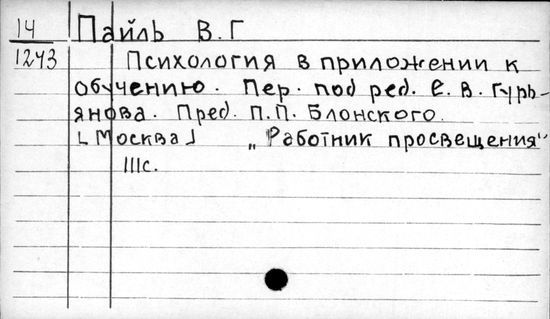 14 Пайль В. Г
1243 Психология в приложении к
обучению. Пер. под ред. Е. В. Гурь-
янова. Пред. П. П. Блонского.
[Москва] „Работник просвещения"
111с.